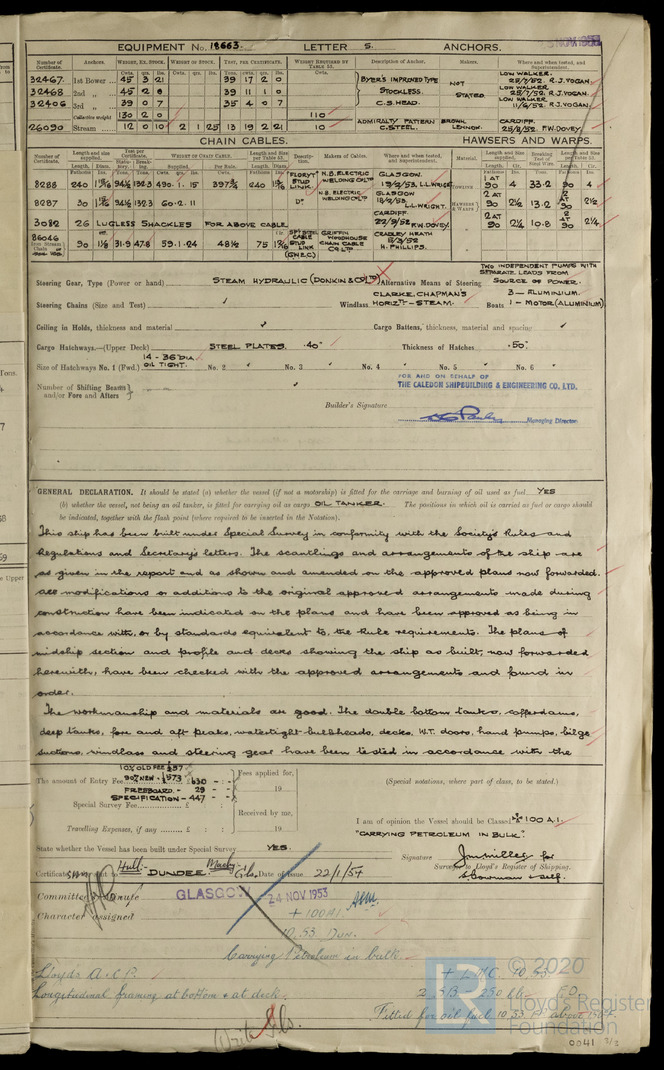 EQUIPMENT No. 18663. LETTER S. ANCHORS.
5 NOV 1953
Number of Certificate. Anchors. WEIGHT, EX. STOCK. WEIGHT OF STOCK. TEST, PER CERTIFICATE. WEIGHT REQUIRED BY TABLE 53. Description of Anchor. Makers. Where and when tested, and Superintendent.
Cwts. qrs. lbs. Cwts. qrs. lbs.
32467. 1st Bower 45 3 21 39 17 2 0 BYER'S IMPROVED TYPE NOT LOW WALKER. 28/7/52. R.J. VOGAN.
32468 2nd „ 45 2 8 39 11 1 0 STOCKLESS. STATED. LOW WALKER 28/7/52 R.J. VOGAN.
32406 3rd „ 39 0 7 35 4 0 7 C.S. HEAD. LOW WALKER 11/6/52 R.J. VOGAN.
Collective weight 130 2 0 110
26090 Stream 12 0 10 2 1 25 13 19 2 21 10 ADMIRALTY PATTERN C.STEEL. BROWN LENNOX. CARDIFF. 25/8/52 F.W. DOVEY.
CHAIN CABLES. HAWSERS AND WARPS.
8288 240 94½ 132.3 490.1.15 397¾ 240 "FLORYT" STUD LINK N.B. ELECTRIC WELDING CO LTD GLASGOW. 19/2/53, L.L. WRIGHT 90 4 33.2 90 4
8287 30 94½ 132.3 60.2.11 Do N.B. ELECTRIC WELDING CO LTD GLASGOW 18/2/53 L.L. WRIGHT. 2 AT 90 2½ 13.2 2 AT 90 2½
3082 26 LUGLESS SHACKLES FOR ABOVE CABLE CARDIFF 22/9/52 F.W. DOVEY. 2 AT 90 2¼ 10.8 2 AT 90 2¼
86046 90 31.9 47.8 59.1.24 48½ 75 STUD LINK GRIFFIN WOODHOUSE CHAIN CABLE CO LTD CRADLEY HEATH H. PHILLIPS.
Steering Gear, Type (Power or hand) STEAM HYDRAULIC (DONKIN & CO LTD) Alternative Means of Steering TWO INDEPENDENT PUMPS WITH SEPARATE LEADS FROM SOURCE OF POWER.
Steering Chains (Size and Test) Windlass CLARKE, CHAPMAN'S HORIZTL - STEAM. Boats 3 - ALUMINIUM. 1 - MOTOR (ALUMINIUM)
Ceiling in Holds, thickness and material Cargo Battens, thickness, material and spacing
Cargo Hatchways.—(Upper Deck) STEEL PLATES. .40" Thickness of Hatches .50"
Size of Hatchways No. 1 (Fwd.) 14 - 36" DIA. OIL TIGHT. No. 2 No. 3 No. 4 No. 5 No. 6
Number of Shifting Beams and/or Fore and Afters
FOR AND ON BEHALF OF
THE CALEDON SHIPBUILDING & ENGINEERING CO. LTD.
Builder's Signature Managing Director
GENERAL DECLARATION. It should be stated (a) whether the vessel (if not a motorship) is fitted for the carriage and burning of oil used as fuel YES
(b) whether the vessel, not being an oil tanker, is fitted for carrying oil as cargo OIL TANKER. The positions in which oil is carried as fuel or cargo should
be indicated, together with the flash point (where required to be inserted in the Notation).
This ship has been built under Special Survey in conformity with the Society's Rules and
Regulations and Secretary's letters. The scantlings and arrangements of the ship are
as given in the report and as shown and amended on the approved plans now forwarded.
All modifications or additions to the original approved arrangements made during
construction have been indicated on the plans and have been approved as being in
accordance with, or by standards equivalent to, the Rule requirements. The plans of
midship section and profile and decks showing the ship as built, now forwarded
herewith, have been checked with the approved arrangements and found in
order.
The workmanship and materials are good. The double bottom tanks, cofferdams,
deep tanks, fore and aft peaks, watertight bulkheads, decks, W.T. doors, hand pumps, bilge
suctions, windlass and steering gear have been tested in accordance with the
10% OLD FEE £57
The amount of Entry Fee 90% NEW - £573 £630 - - Fees applied for,
FREEBOARD - 29 - - 19
Special Survey Fee SPECIFICATION - 447 - -
Received by me,
Travelling Expenses, if any £ : : 19
(Special notations, where part of class, to be stated.)
I am of opinion the Vessel should be Classed ✠ 100 A1.
"CARRYING PETROLEUM IN BULK".
State whether the Vessel has been built under Special Survey YES.
Signature J.M. Miller for
Surveyor to Lloyd's Register of Shipping.
S. Bowman & self.
Certificate to be sent to Hull DUNDEE. Date of issue 22/1/54
Committee's Minute GLASGOW 24 NOV 1953
Character assigned + 100A1
10.53 Dun.
Carrying Petroleum in bulk.
Lloyds A & C P. + LMC 10.53
Longitudinal framing at bottom & at deck. 2 SB 250 lb FD
Fitted for oil fuel 10.53 FP above 150°F.
Write Gls.
© 2020
LR
Lloyd's Register
Foundation
0041 2/2